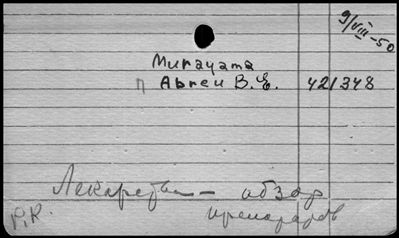 9/VIII-50
Murayama
П Abreu B. E. 421348
Лекарства — обзор
препаратов
Р.К.